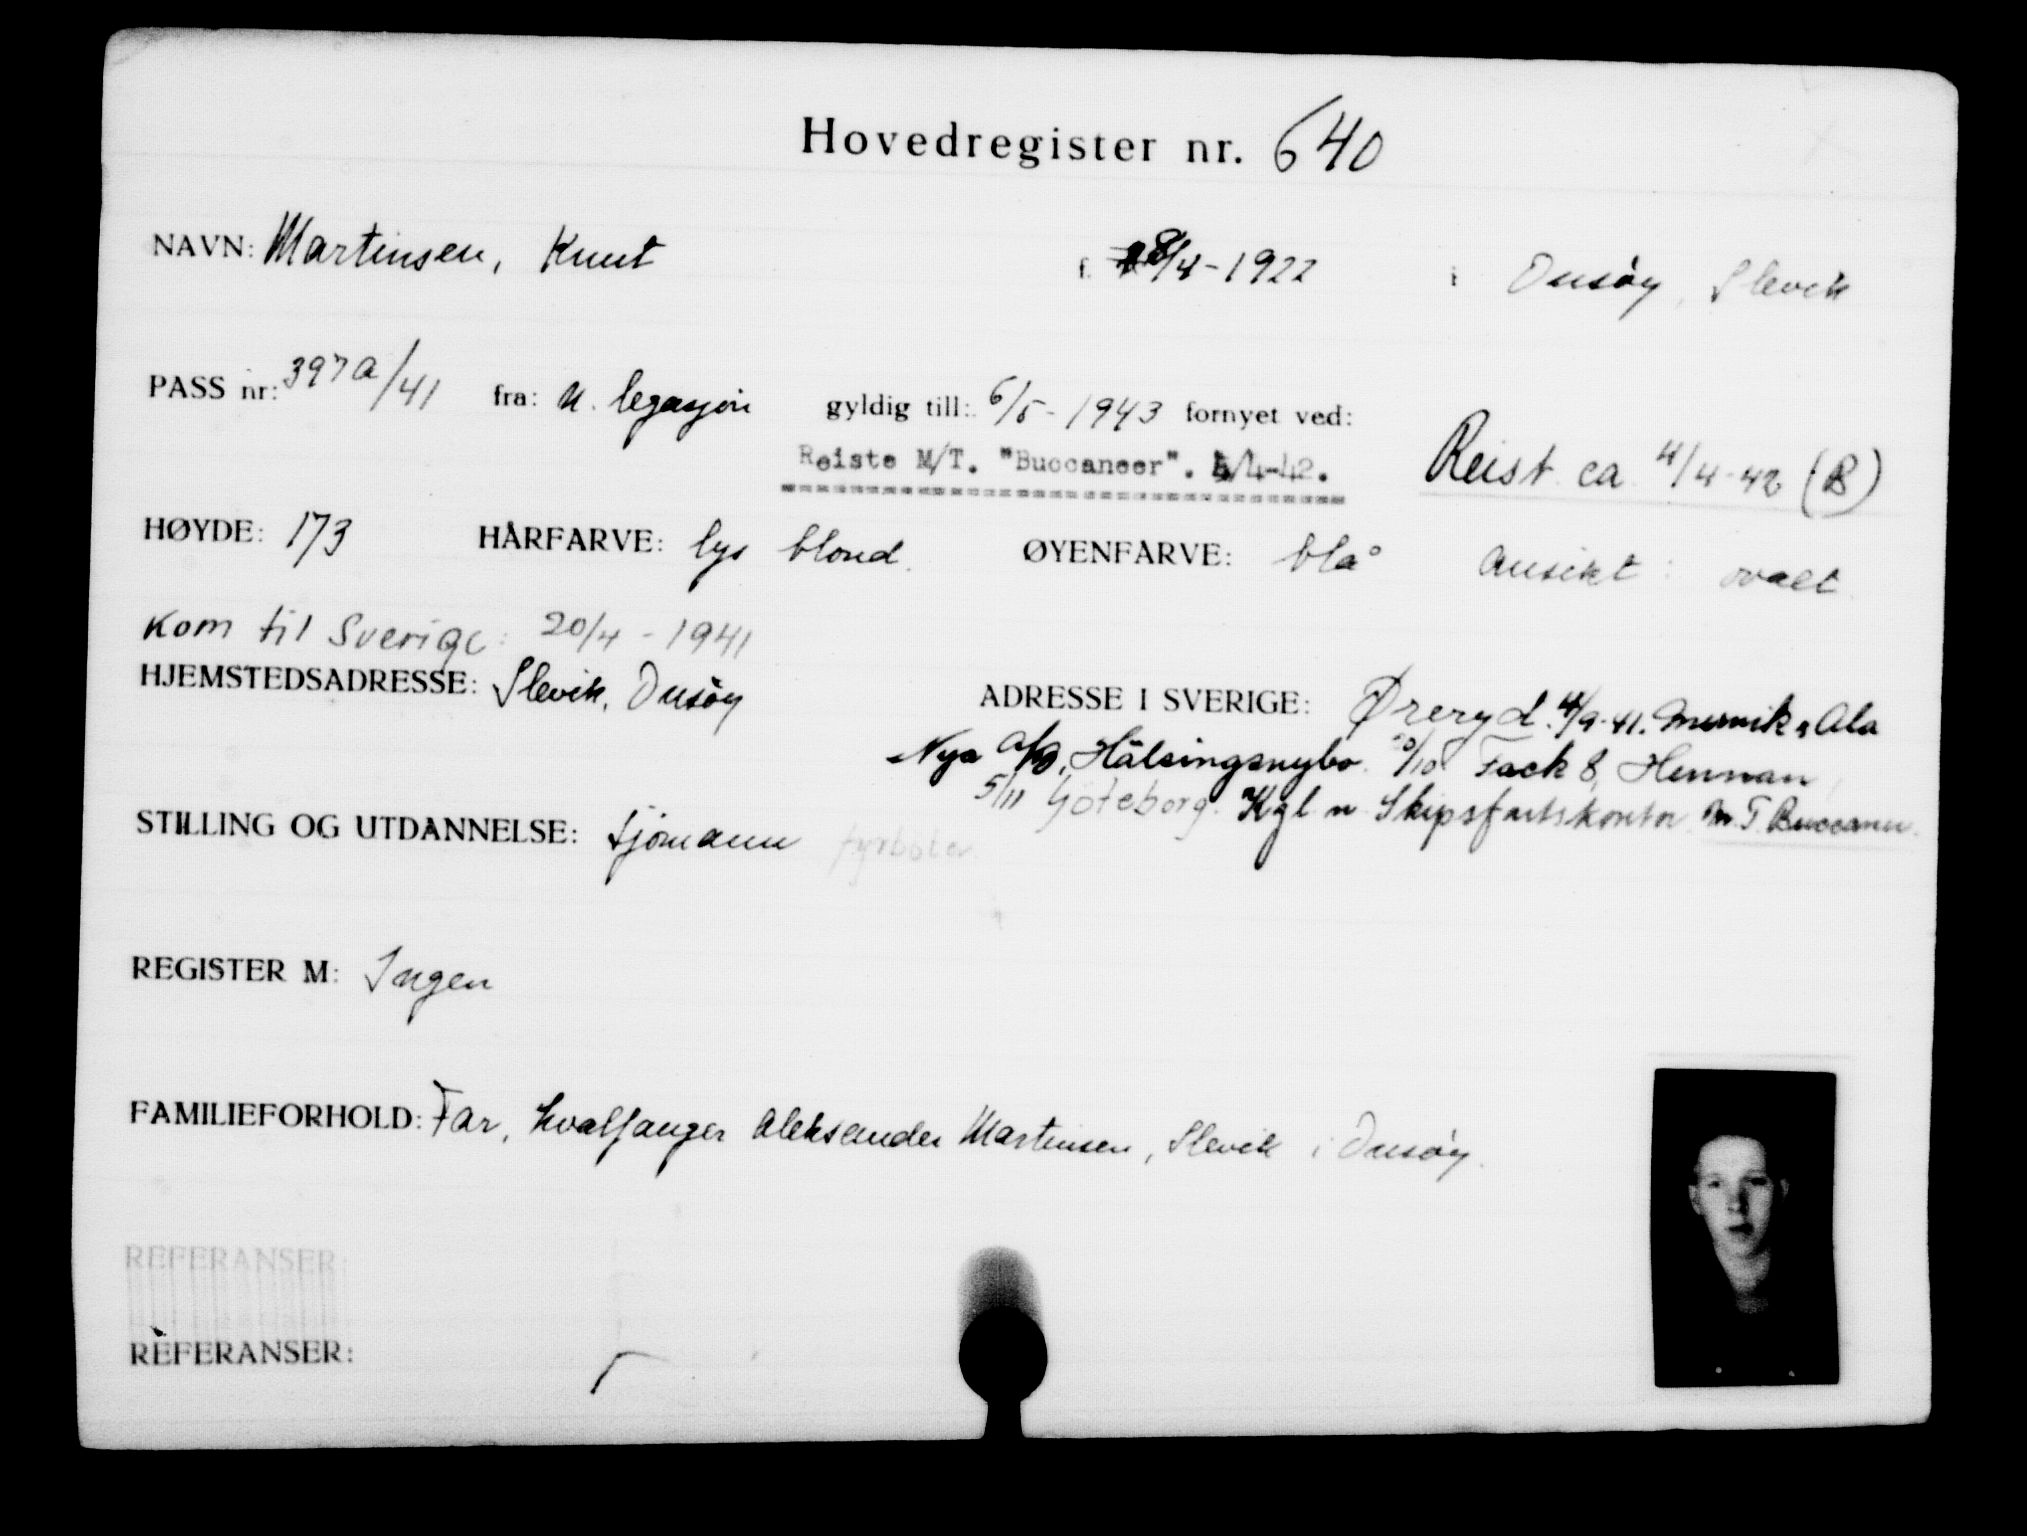 Hovedregister nr. 640
NAVN: Martinsen, Knut f. 8/4-1922 i Onsøy, Slevik
PASS nr: 397a/41 fra: N. legasjon gyldig till: 6/5-1943 fornyet ved:
Reiste M/T. "Buccaneer". 4/4-42. Reist ca 4/4-42 (B)
HØYDE: 173 HÅRFARVE: lys blond. ØYENFARVE: blå Ansikt: ovalt
Kom til Sverige: 20/4-1941
HJEMSTEDSADRESSE: Slevik, Onsøy ADRESSE I SVERIGE: Øreryd. 4/9-41. Ala
Nya A/B, Hälsingsnybo. 20/10 Fack 8, Hennan,
5/11 Göteborg. Kgl n Skipsfartskontor M.T. Buccaneer.
STILLING OG UTDANNELSE: sjömann fyrböter
REGISTER M: Ingen
FAMILIEFORHOLD: Far, hvalfanger Aleksander Martinsen, Slevik i Onsøy.
REFERANSER:
REFERANSER: